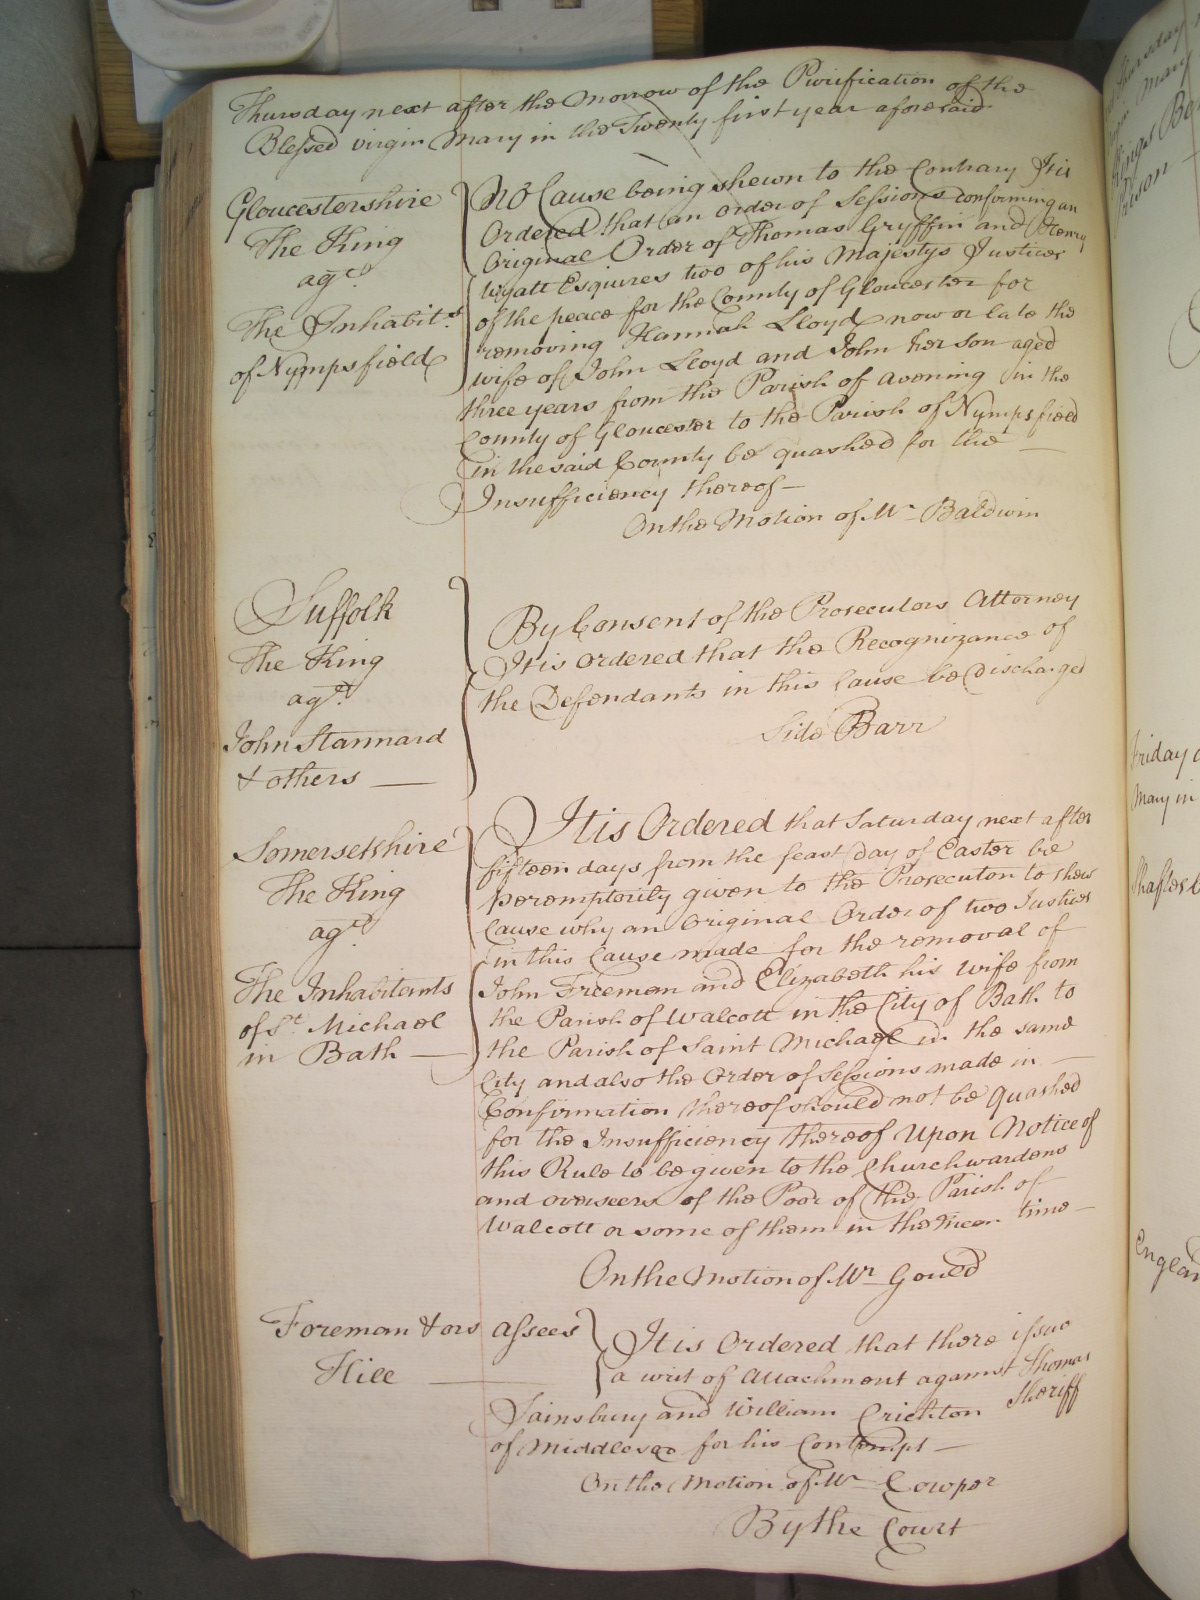 Thursday next after the Morrow of the Purification of the
Blessed virgin Mary in the Twenty first year aforesaid
Gloucestershire
The King
agt.
The Inhabits.
of Nympsfield
No Cause being shewn to the Contrary It is
Ordered that an order of Sessions confirming an
Original Order of Thomas Gryffin and Henry
Wyatt Esquires two of his Majestys Justices
of the peace for the County of Gloucester for
removing Hannah Lloyd now or late the
wife of John Lloyd and John her son aged
three years from the Parish of Avening in the
County of Gloucester to the Parish of Nympsfield
in the said County be quashed for the
Insufficiency thereof
On the Motion of Mr Baldwin
Suffolk
The King
agt.
John Stannard
& others
By Consent of the Prosecutors Attorney
It is ordered that the Recognizance of
the Defendants in this Cause be Discharged
Side Barr
Somersetshire
The King
agt.
The Inhabitants
of St. Michael
in Bath
It is Ordered that Saturday next after
fifteen days from the feast day of Easter be
peremptorily given to the Prosecutor to shew
Cause why an Original Order of two Justices
in this Cause made for the removal of
John Freeman and Elizabeth his wife from
the Parish of Walcott in the City of Bath to
the Parish of Saint Michael in the same
City and also the Order of Sessions made in
Confirmation thereof should not be quashed
for the Insufficiency thereof Upon Notice of
this Rule to be given to the Churchwardens
and overseers of the Poor of the Parish of
Walcott or some of them in the mean time
On the Motion of Mr Gould
Foreman & ors assees
Hill
It is Ordered that there issue
a writ of Attachment against Thomas
Sainsbury and William Crichton Sheriff
of Middlesex for his Contempt
On the Motion of Mr Cowper
By the Court
Thursday
Mary
Kings Be
Prison
Friday
Mary in
Shaftesb
England